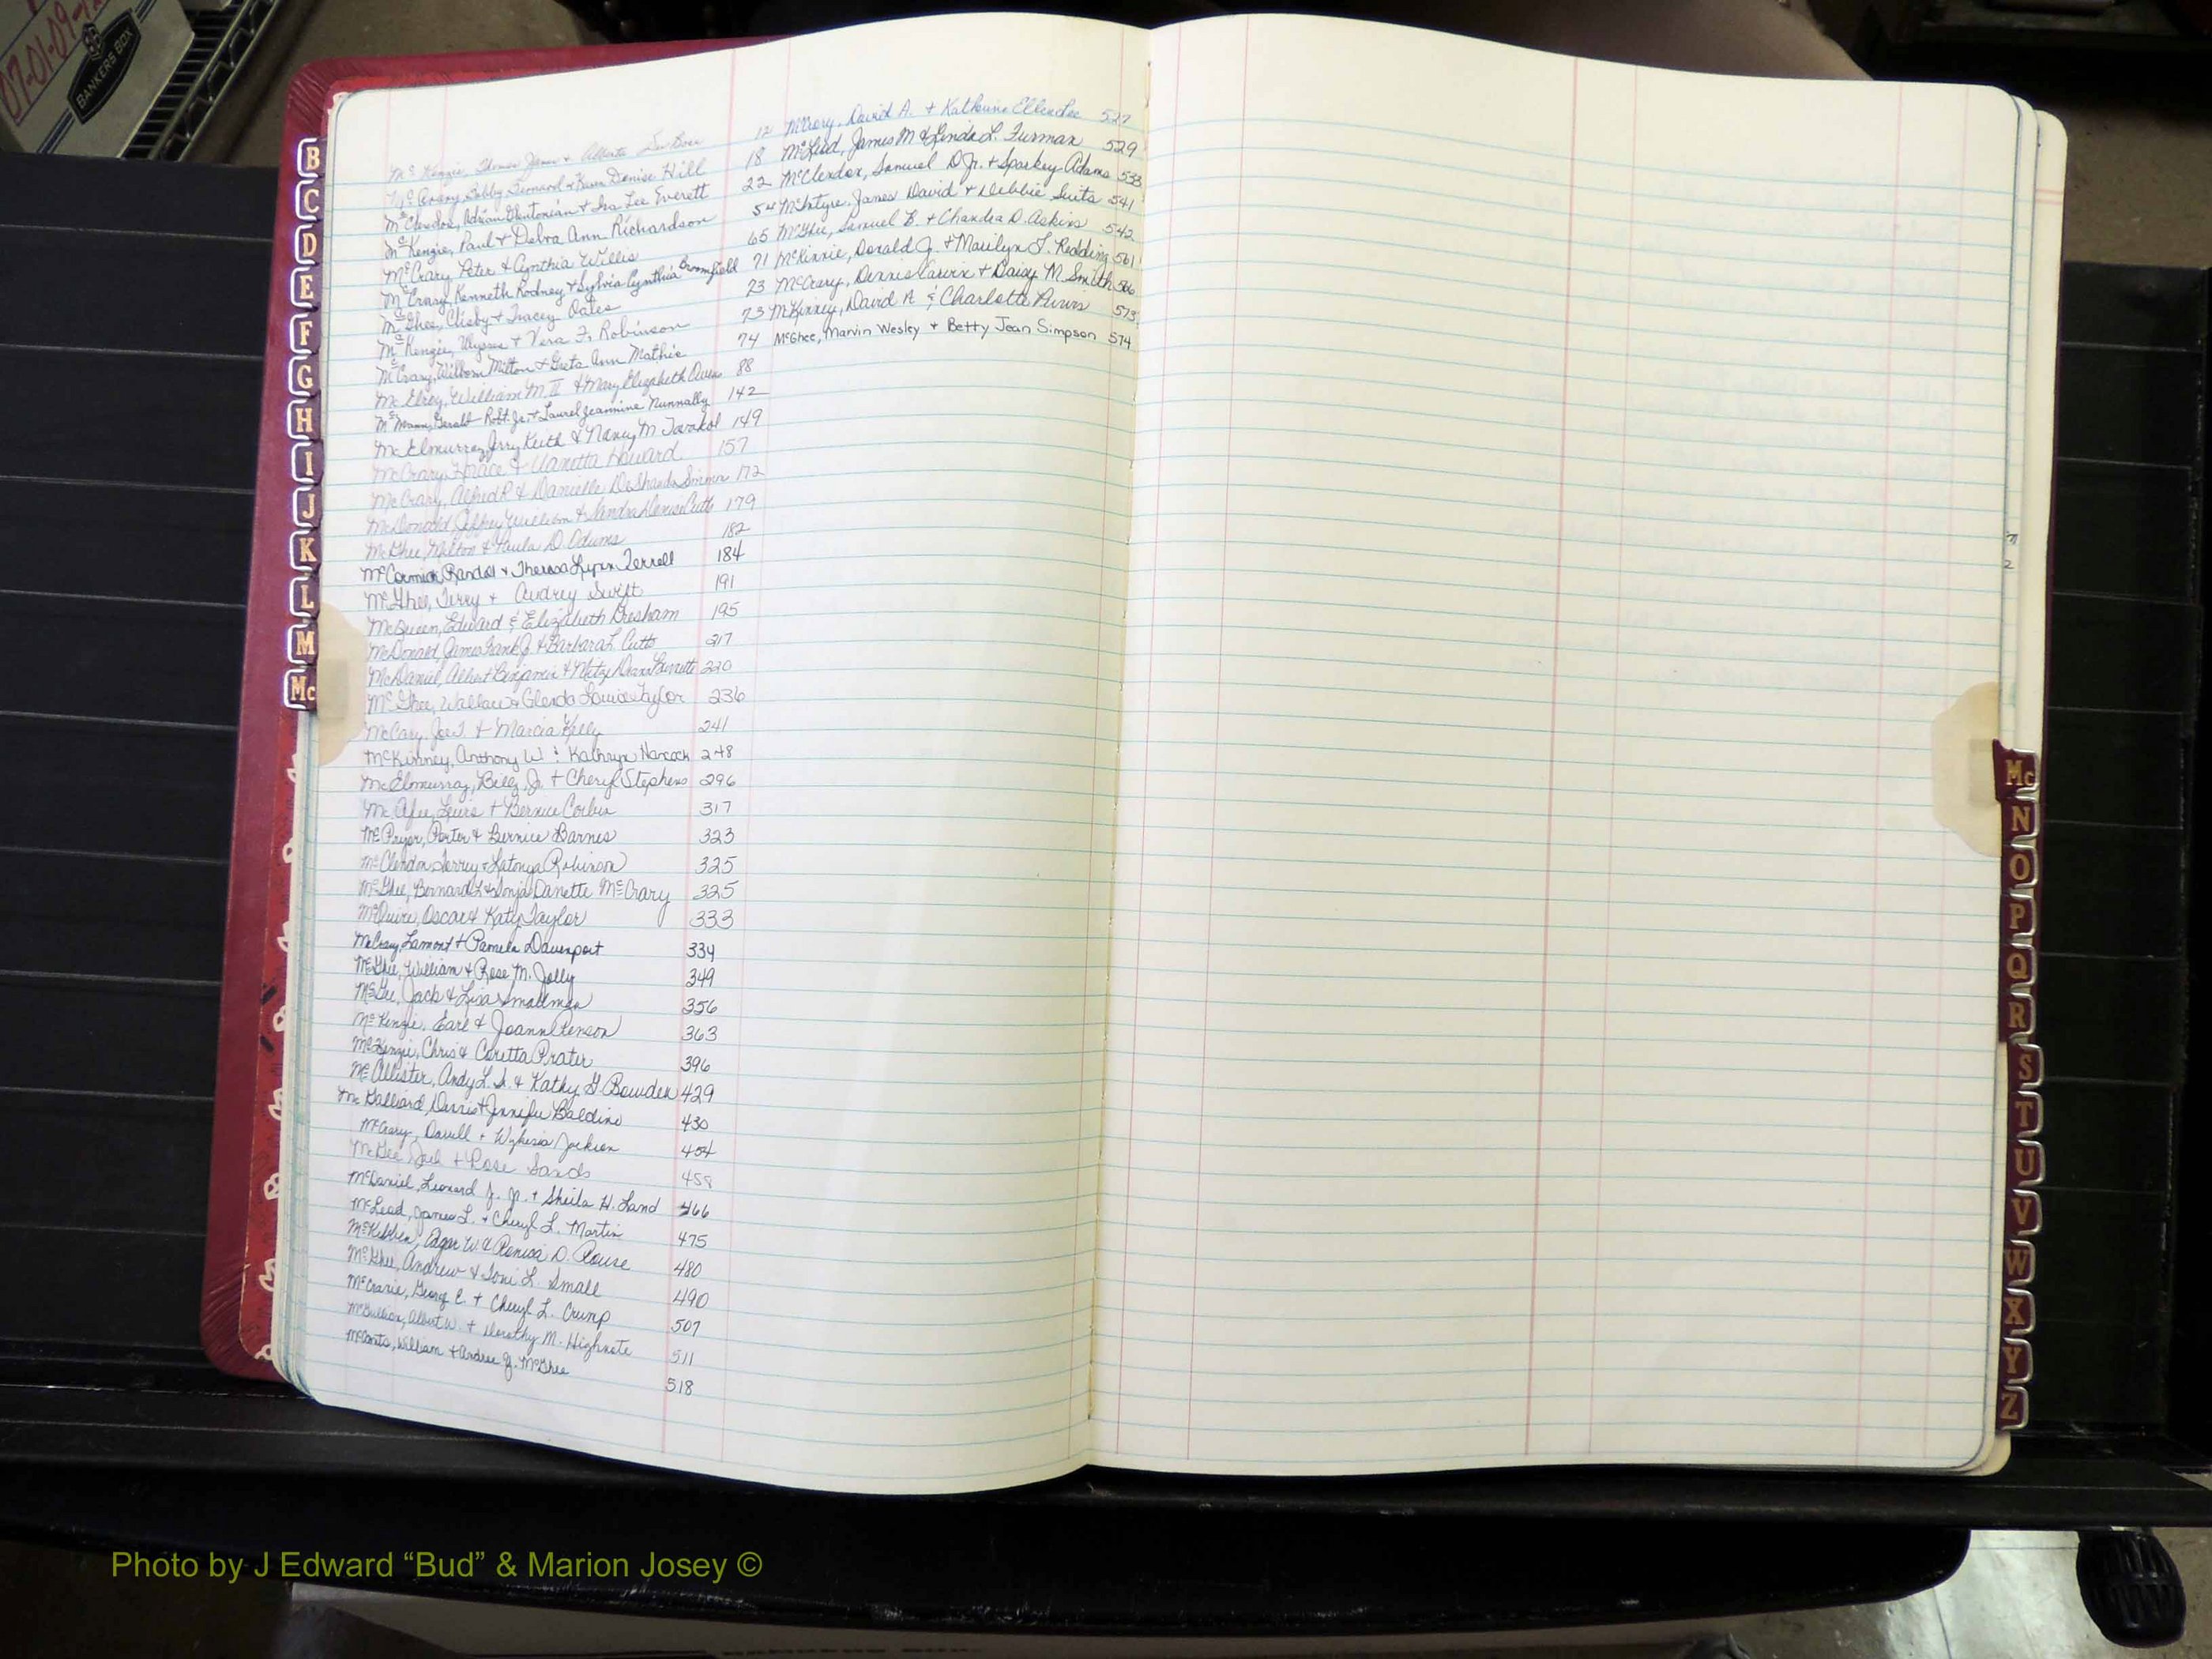 07-01-09-12
BANKERS BOX
B
C
D
E
F
G
H
I
J
K
L
M
Mc
McKenzie, Thomas James + Alberta 12
McCrary, Bobby Leonard + Karen Denise Hill 18
McClendon, Adrian + Ira Lee Everett 22
McKenzie, Paul + Debra Ann Richardson 54
McCrary, Peter & Cynthia Willis 65
McCrary, Kenneth Rodney + Sylvia Cynthia Broomfield 71
McGhee, Clisby + Tracey Oates 73
McKenzie, Ulysses + Vera F. Robinson 73
McCrary, Milton + Greta Ann Mathis 74
McElroy, William M. II + Mary Elizabeth Owen 88
McMann, Gerald Robt. Jr. + Laurel Jeannine Nunnally 142
McElmurray, Jerry Keith & Nancy M. Tavakol 149
McCrary, Horace & Vanetta Howard 157
McCrary, Alfred R & Danielle DeShanda 172
McDonald, Jeffrey William & Sandra Denise Cutts 179
McGhee, Milton & Paula D. Odums 182
McCormick, Randol + Theresa Lynn Terrell 184
McGhee, Terry + Audrey Swift 191
McQueen, Edward & Elizabeth Gresham 195
McDonald, James Frank Jr. + Barbara L. Cutts 217
McDaniel, Albert Benjamin + 220
McGhee, Wallace + Glenda Louise Taylor 236
McCary, Joe T. + Marcia Kelly 241
McKinney, Anthony W. & Kathryn Hancock 248
McElmurray, Billy Jr. + Cheryl Stephens 296
McAfee, Lewis + Bernice Corbin 317
McPryor, Porter + Bernice Barnes 323
McClendon, Terry + Latonya Robinson 325
McGhee, Bernard L. + Sonja Danette McCrary 325
Oscar & Katy Taylor 333
McCrary, Lamont + Pamela Davenport 334
McGhee, William + Rose M. Jolly 349
McGee, Jack & Lisa Smallman 356
McKenzie, Earl & Joann Penson 363
McKenzie, Chris & Coretta Prater 396
McAllister, Andy L. Sr. + Kathy G. Bowden 429
McGalliard, + Jennifer Baldino 430
McCrary, + Jackson 454
McGee, Jack + Rose Sands 458
McDaniel, Leonard J. Jr. + Sheila H. Land 466
McLeod, James L. + Cheryl L. Martin 475
McKibben, Edgar W. & D. Rouse 480
McGhee, Andrew & Toni L. Small 490
George E. + Cheryl L. Crump 507
Albert W. + Dorothy M. Highnote 511
William + Andrea J. McGhee 518
McCrory, David A. + Katherine Ellen Lee 527
McLeod, James M & Linda L. Furman 529
McClendon, Samuel D Jr. + Sparkey Adams 533
McIntyre, James David + Debbie Suits 541
McGhee, Samuel B. + Chandra D. Askins 542
McKinnie, Donald J. + Marilyn J. Redding 561
McCrary, Dennis Carvin + Daisy M. Smith 566
McKinney, David A & Charlotte Purvis 573
McGhee, Marvin Wesley + Betty Jean Simpson 574
Mc
N
O
P
Q
R
S
T
U
V
W
X
Y
Z
Photo by J Edward “Bud” & Marion Josey ©